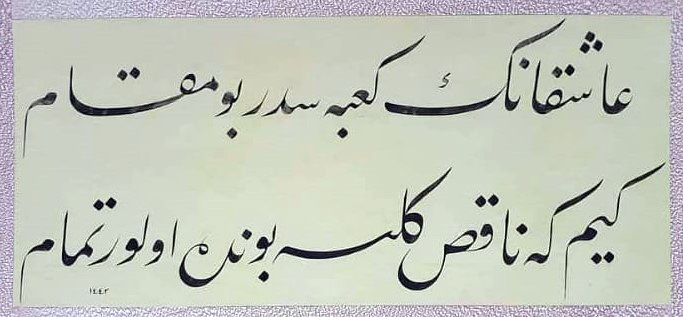 عاشقانك كعبه سدر بو مقام
كيم كه ناقص كلسه بونده اولور تمام
١٤٤٢